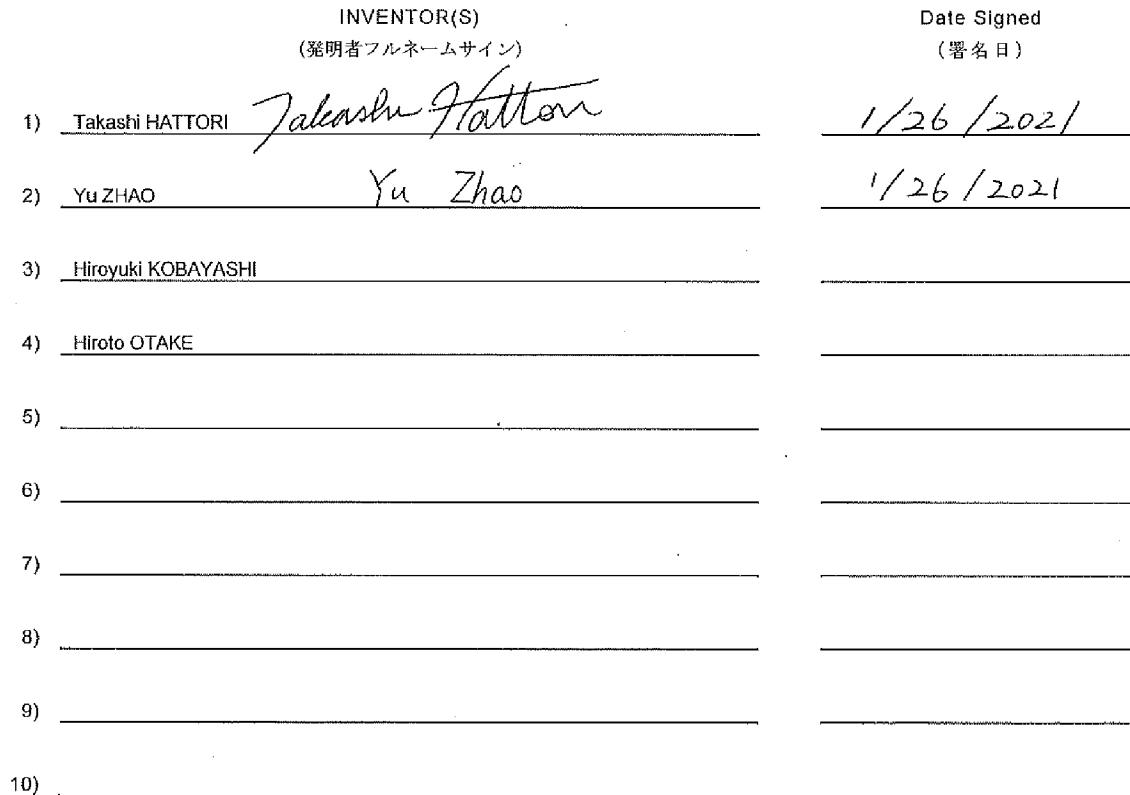 INVENTOR(S) Date Signed
(発明者フルネームサイン) (署名日)
1) Takashi HATTORI Takashi Hattori 1/26/2021
2) Yu ZHAO Yu Zhao 1/26/2021
3) Hiroyuki KOBAYASHI
4) Hiroto OTAKE
5)
6)
7)
8)
9)
10)